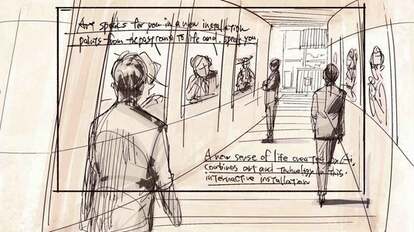 Art speaks for you in a new installation
paints from the past come to life and speak you
A new sense of life created by AI,
combines art and technology in this
interactive installation